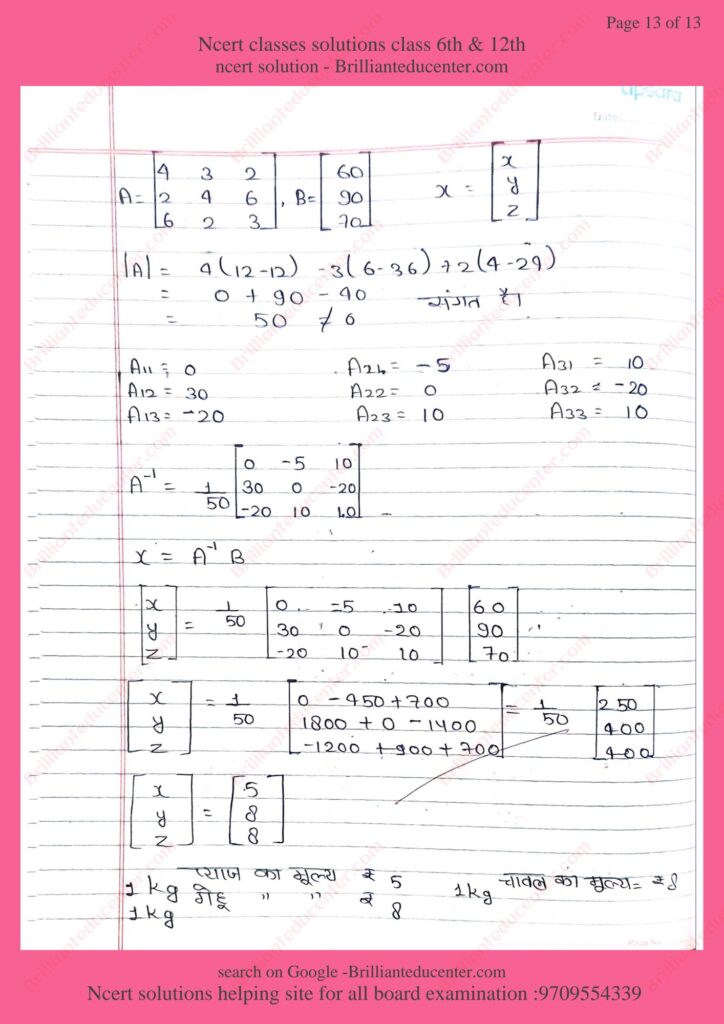 Page 13 of 13
Ncert classes solutions class 6th & 12th
ncert solution - Brillianteducenter.com
apsara
Date:
A = [4 3 2
2 4 6
6 2 3], B = [60
90
70] x = [x
y
z]
|A| = 4(12-12) -3(6-36) +2(4-24)
= 0 + 90 - 40 संगत है।
= 50 ≠ 0
A11 = 0 A21 = -5 A31 = 10
A12 = 30 A22 = 0 A32 = -20
A13 = -20 A23 = 10 A33 = 10
A⁻¹ = 1/50 [0 -5 10
30 0 -20
-20 10 10]
x = A⁻¹ B
[x
y
z] = 1/50 [0 -5 10
30 0 -20
-20 10 10] [60
90
70]
[x
y
z] = 1/50 [0 - 450 + 700
1800 + 0 - 1400
-1200 + 900 + 700] = 1/50 [250
400
400]
[x
y
z] = [5
8
8]
1 kg प्याज का मूल्य ₹ 5 1 kg चावल का मूल्य = ₹ 8
1 kg गेहू " " ₹ 8
Page No.
search on Google -Brillianteducenter.com
Ncert solutions helping site for all board examination :9709554339